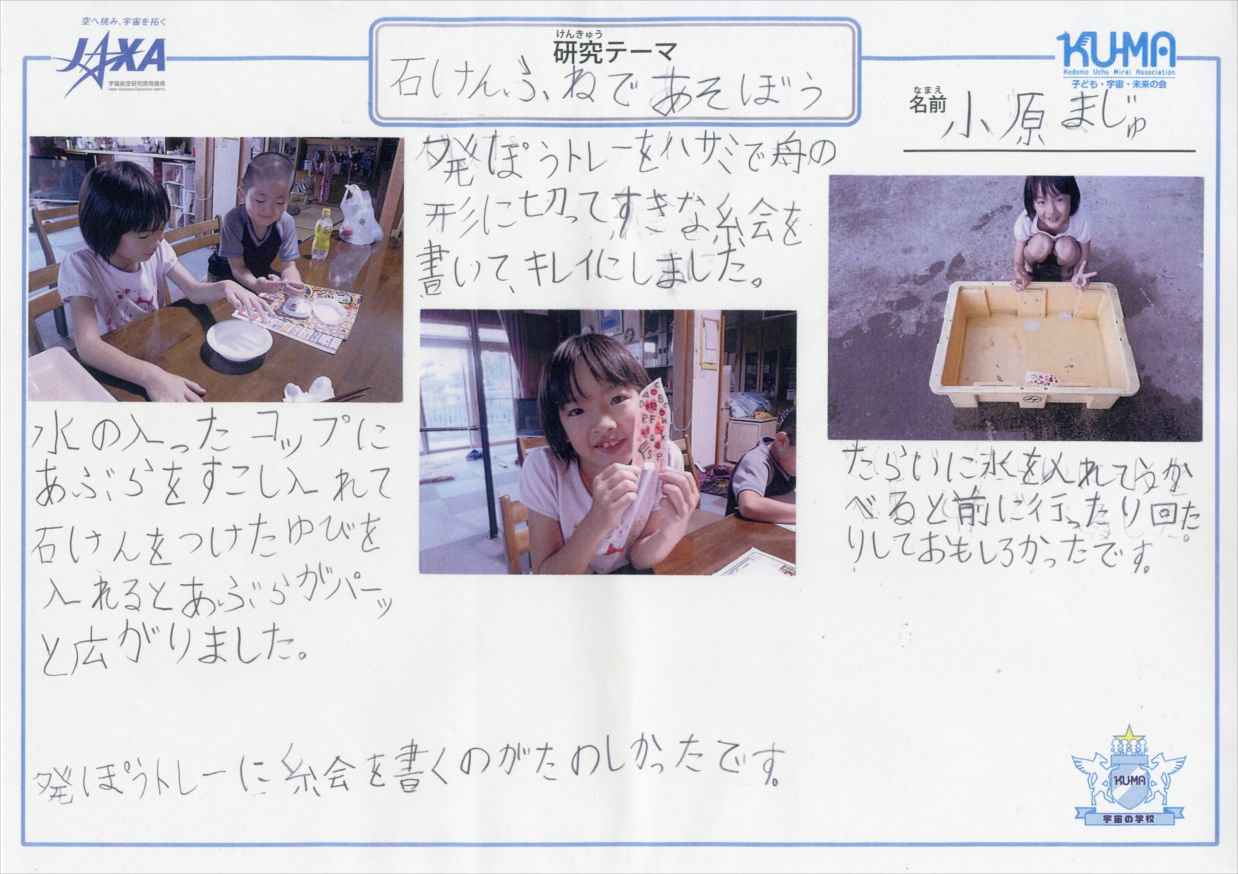 空へ挑み、宇宙を拓く
JAXA
宇宙航空研究開発機構
Japan Aerospace Exploration Agency
けんきゅう
研究テーマ
石けんふねであそぼう
KU-MA
Kodomo Uchu Mirai Association
子ども・宇宙・未来の会
なまえ
名前
小原まじゅ
水の入ったコップに
あぶらをすこし入れて
石けんをつけたゆびを
入れるとあぶらがパーッ
と広がりました。
発ぽうトレーをハサミで舟の
形に切ってすきな絵を
書いて、キレイにしました。
たらいに水を入れてうか
べると前に行ったり回た
りしておもしろかったです。
発ぽうトレーに絵を書くのがたのしかったです。
KU-MA
宇宙の学校